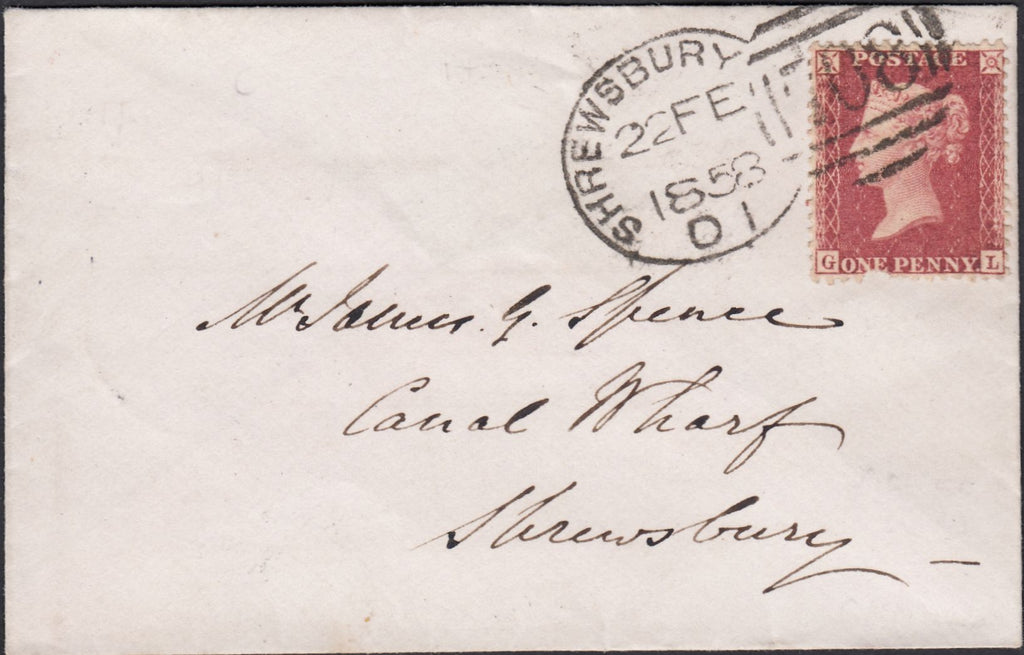 SHREWSBURY
22 FE
1858
D 1
POSTAGE
G ONE PENNY L
Mr James. G. Spence
Canal Wharf
Shrewsbury –